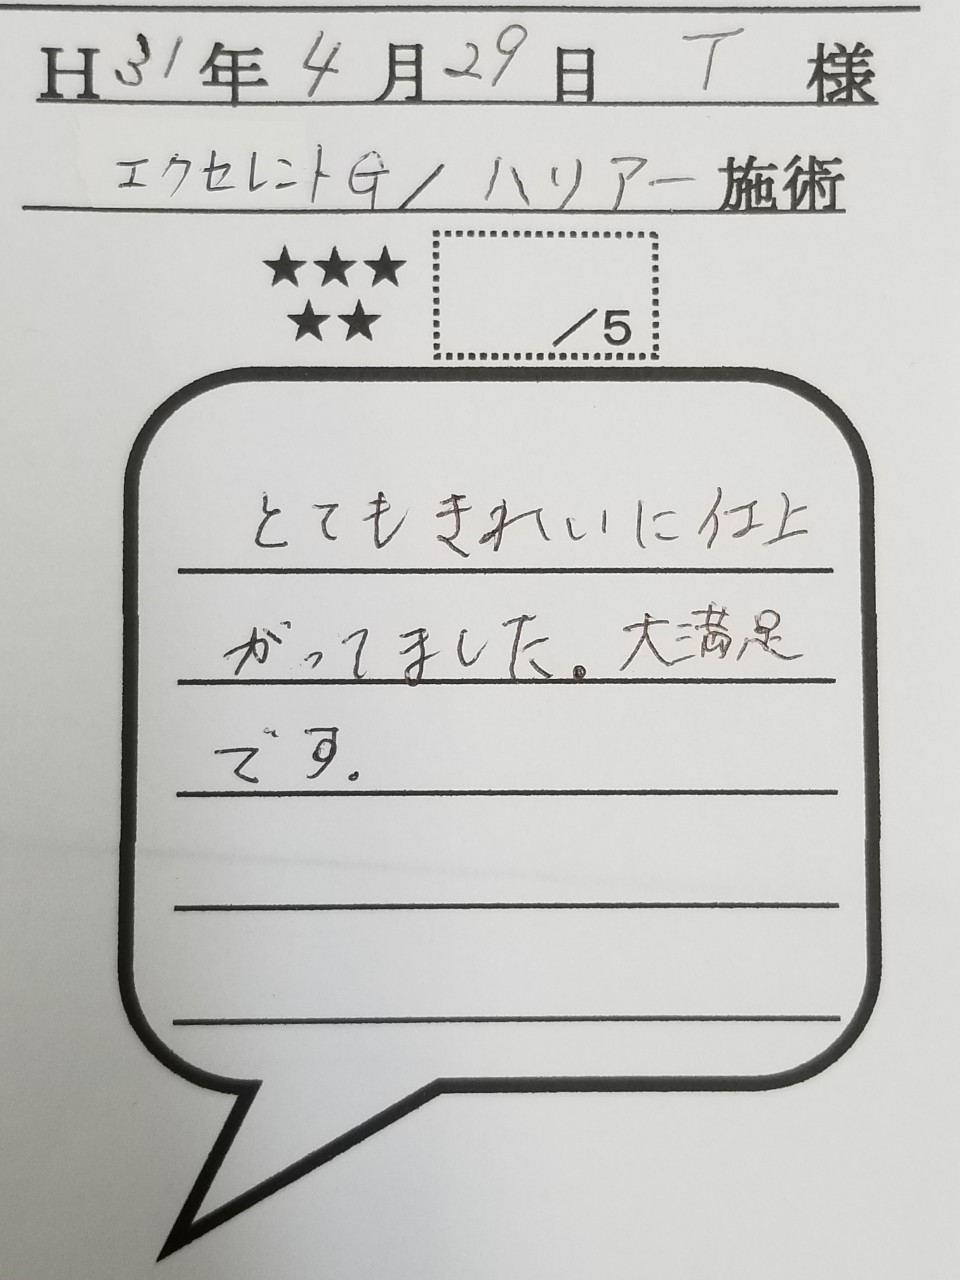 H31年4月29日 T 様
エクセレントG/ハリアー 施術
★★★
★★
/5
とてもきれいに仕上
がってました。大満足
です。